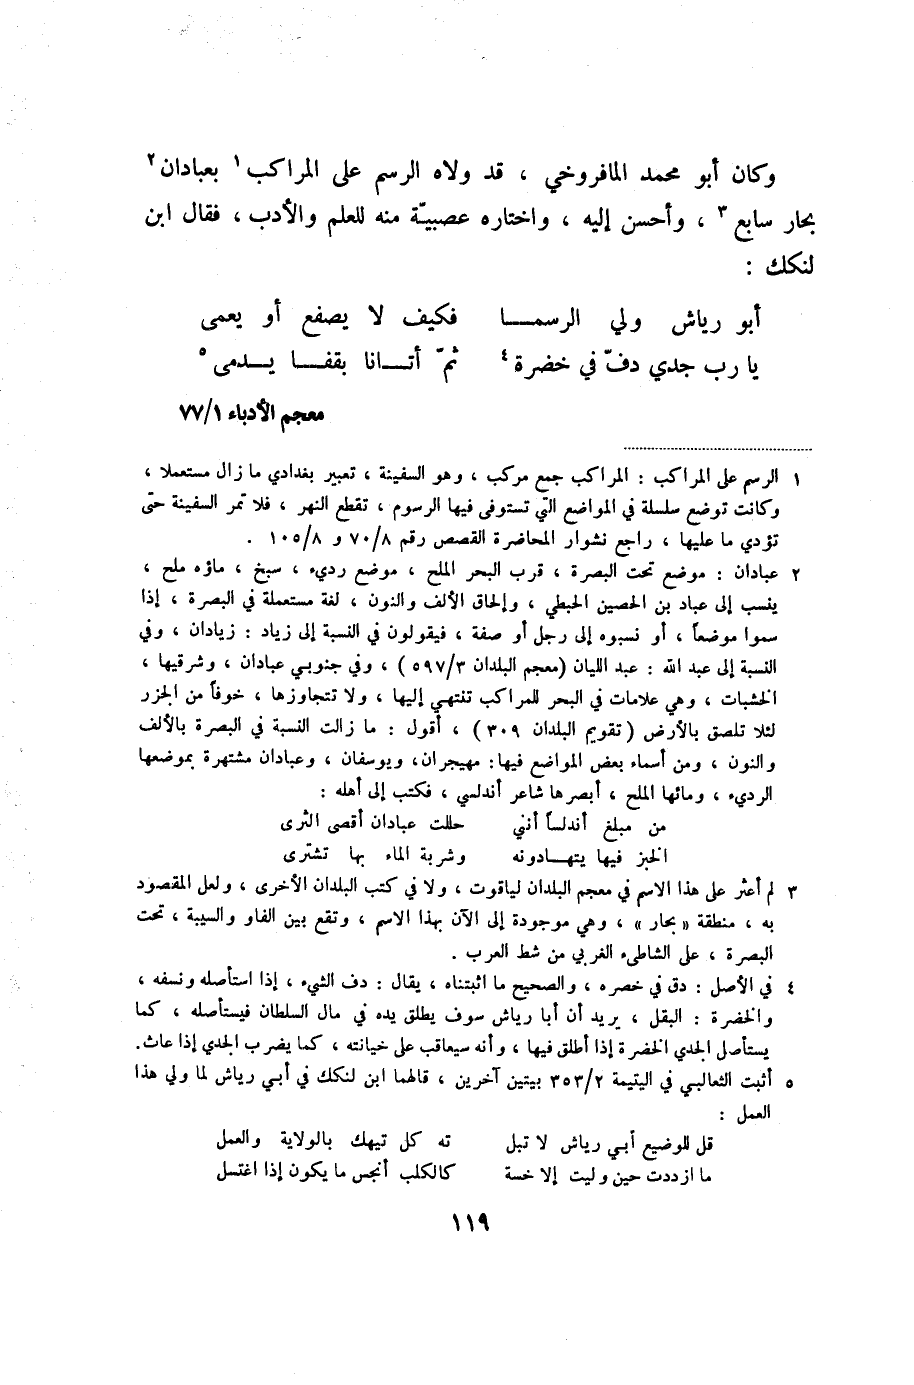 وكان أبو محمد المافروخي ، قد ولاه الرسم على المراكب ١ بعبادان ٢
بحار سابع ٣ ، وأحسن إليه ، واختاره عصبيّة منه للعلم والأدب ، فقال ابن
لنكك :
أبو رياش ولي الرسمـــا فكيف لا يصفع أو يعمى
يا رب جدي دفّ في خضرة ٤ ثمّ أتـــانا بقفـــا يـــدمى ٥
معجم الأدباء ٧٧/١
١ الرسم على المراكب : المراكب جمع مركب ، وهو السفينة ، تعبير بغدادي ما زال مستعملا ،
وكانت توضع سلسلة في المواضع التي تستوفى فيها الرسوم ، تقطع النهر ، فلا تمر السفينة حتّى
تؤدي ما عليها ، راجع نشوار المحاضرة القصص رقم ٧٠/٨ و ١٠٥/٨ .
٢ عبادان : موضع تحت البصرة ، قرب البحر الملح ، موضع رديء ، سبخ ، ماؤه ملح ،
ينسب إلى عباد بن الحصين الحبطي ، وإلحاق الألف والنون ، لغة مستعملة في البصرة ، إذا
سموا موضعاً ، أو نسبوه إلى رجل أو صفة ، فيقولون في النسبة إلى زياد : زيادان ، وفي
النسبة إلى عبد الله : عبد الليان (معجم البلدان ٥٩٧/٣) ، وفي جنوبي عبادان ، وشرقيها ،
الخشبات ، وهي علامات في البحر للمراكب تنتهي إليها ، ولا تتجاوزها ، خوفاً من الجزر
لئلا تلصق بالأرض (تقويم البلدان ٣٠٩) ، أقول : ما زالت النسبة في البصرة بالألف
والنون ، ومن أسماء بعض المواضع فيها: مهيجران، ويوسفان ، وعبادان مشتهرة بموضعها
الرديء ، ومائها الملح ، أبصرها شاعر أندلسي ، فكتب إلى أهله :
من مبلغ أندلساً أنني حللت عبادان أقصى الثرى
الخبز فيها يتهـــادونه وشربة الماء بها تشترى
٣ لم أعثر على هذا الاسم في معجم البلدان لياقوت ، ولا في كتب البلدان الأخرى ، ولعل المقصود
به ، منطقة « بحار » ، وهي موجودة إلى الآن بهذا الاسم ، وتقع بين الفاو والسيبة ، تحت
البصرة ، على الشاطىء الغربي من شط العرب .
٤ في الأصل : دق في خصره ، والصحيح ما اثبتناه ، يقال : دف الشيء ، إذا استأصله ونسفه ،
والخضرة : البقل ، يريد أن أبا رياش سوف يطلق يده في مال السلطان فيستأصله ، كما
يستأصل الجدي الخضرة إذا أطلق فيها ، وأنه سيعاقب على خيانته ، كما يضرب الجدي إذا عاث.
٥ أثبت الثعالبي في اليتيمة ٣٥٣/٢ بيتين آخرين ، قالهما ابن لنكك في أبي رياش لما ولي هذا
العمل :
قل للوضيع أبي رياش لا تبل ته كل تيهك بالولاية والعمل
ما ازددت حين وليت إلا خسة كالكلب أنجس ما يكون إذا اغتسل
١١٩